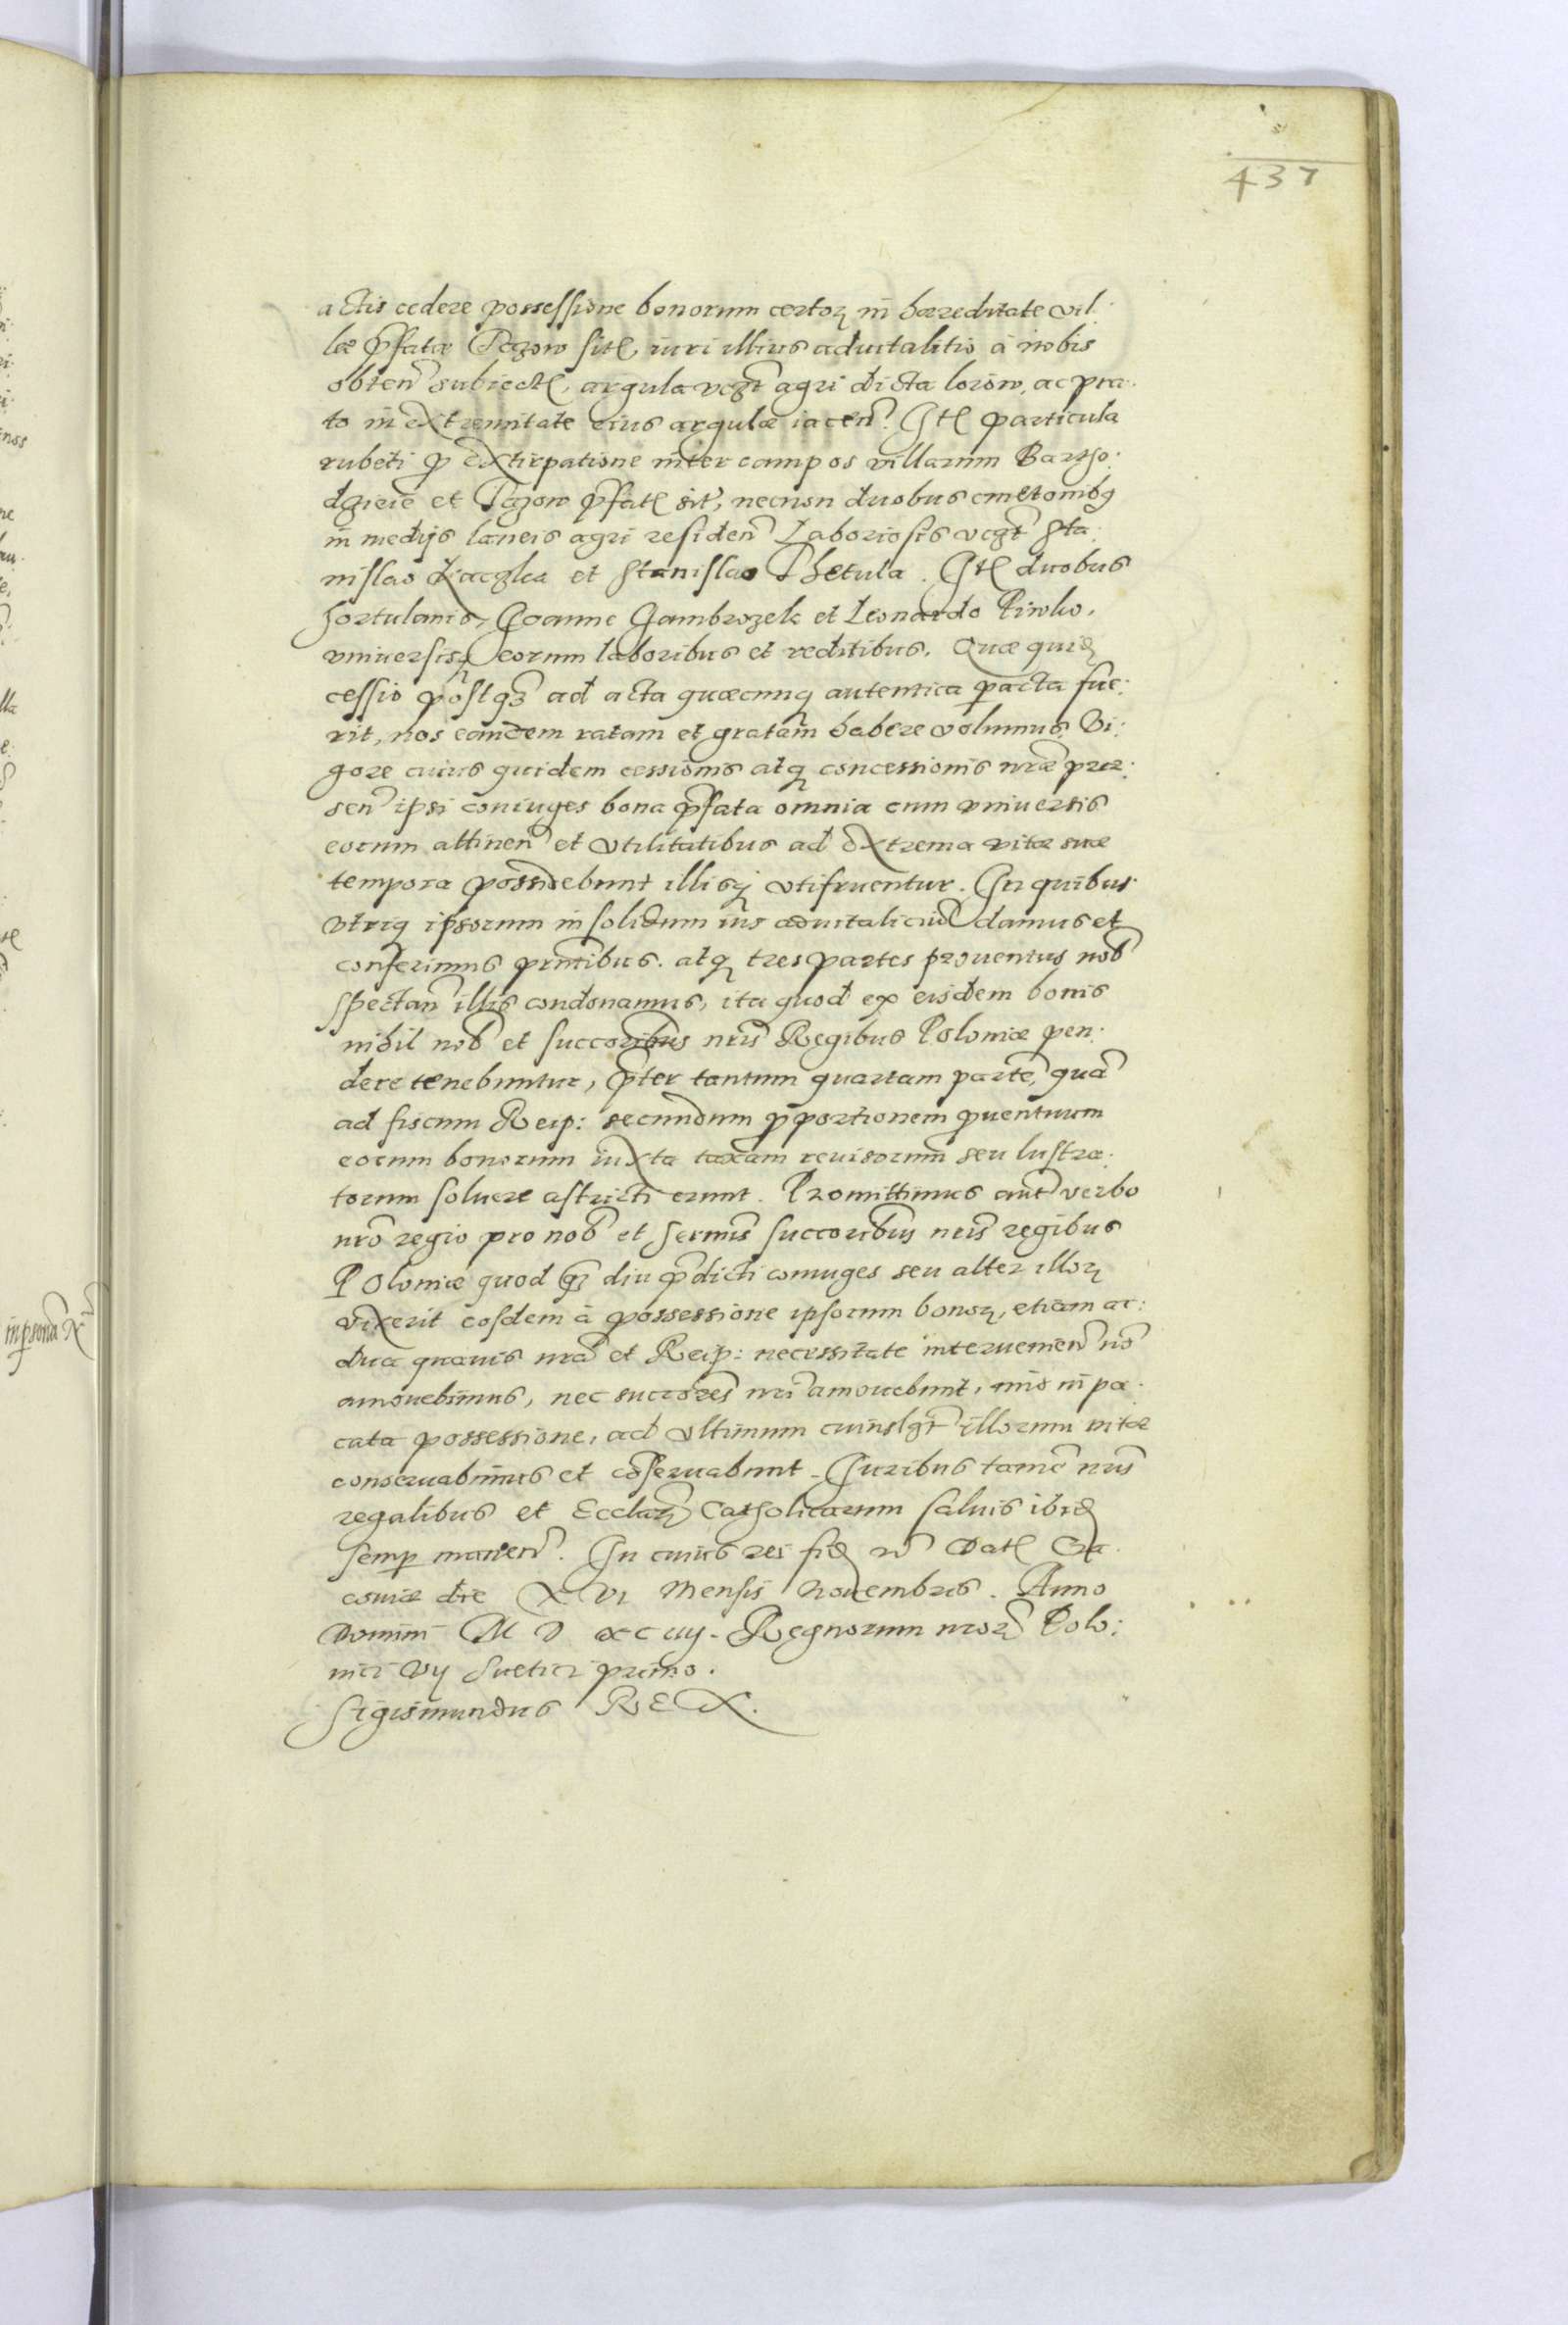 437
actis cedere possessione bonorum certoꝝ in hæreditate vil:
læ p̄fatæ Tczow sitꝭ, iuri illius aduitalitio à nobis
obten̄ subiectꝭ, argula vczt agri dicta lozow, ac pra:
to in extremitate eius argulæ iacen̄. Itꝭ particula
rubeti ꝓ extirpatione inter campos villarum Bartho:
dzieie et Tczow p̄fatꝭ sit̄, necnon duobus cmetonibꝫ
in medijs laneis agri residen̄ Laboriosis vczt Sta:
nislao et Stanislao Thetula. Itꝭ duobus
hortulanis, Joanne Jambrozek et Leonardo Piwko,
vniuersisqꝫ eorum laboribus et reditibus. Quæ quidꝭ
cessio postqꝫ ad acta quæcunqꝫ autentica peracta fue:
rit, nos eandem ratam et gratam habere volumus. Vi:
gore cuius quidem cessionis atqꝫ concessionis nr̄æ præ:
sen̄ ipsi coniuges bona p̄fata omnia cum vniuersis
eorum attinen̄ et vtilitatibus ad extrema vitæ suæ
tempora possidebunt illisqꝫ vtifruentur. In quibus
vtriqꝫ ipsorum in solidum ius aduitaliciū damus et
conferimus prn̄tibus. atqꝫ tres partes prouentus nob̄
spectan̄ illis condonamus, ita quod ex eisdem bonis
nihil nob̄ et succoribus nr̄is Regibus Poloniæ pen:
dere tenebuntur, p̄ter tantum quartam partē, quā
ad fiscum Reip: secundum ꝓportionem ꝓuentuum
eorum bonorum iuxta taxam reuisorum seu lustra:
torum soluere astricti erunt. Promittimus aut̄ verbo
nr̄o regio pro nob̄ et sermis succoribus nr̄is regibus
Poloniæ quod qꝫ diu p̄dicti coniuges seu alter illoꝝ
vixerit eosdem à possessione ipsorum bonoꝝ, etiam ar:
dua quauis nr̄a et Reip: necessitate interuenien̄ nō
amouebimus, nec succores nr̄i amouebunt, imo in pa:
cata possessione, ad vltimum cuiuslꝫt illorum vitæ
conseruabimus et cōseruabunt. Juribus tamē nr̄is
regalibus et Ecclāꝝ Catholicarum saluis ibidꝭ
semp manen̄. In cuius rei fidꝭ Datꝭ Cra:
couiæ die XVI Mensis Nouembris. Anno
Domini M D XCiiij. Regnorum nroꝝ Polo:
nici Vij Suetici primo.
Sigismundus REX.